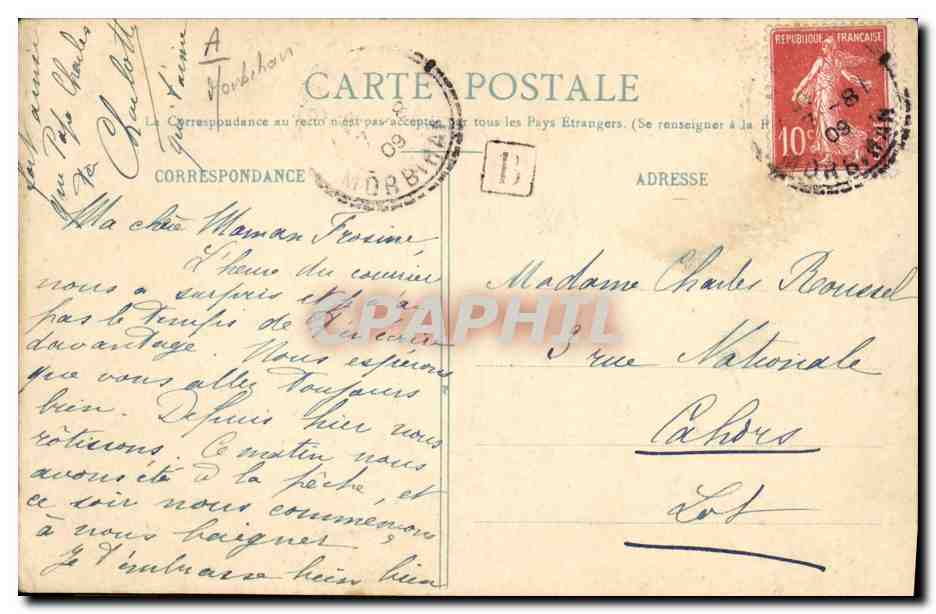 CARTE POSTALE
La Correspondance au recto n'est pas acceptée par tous les Pays Etrangers. (Se renseigner à la
CORRESPONDANCE
ADRESSE
REPUBLIQUE FRANÇAISE
10c
-8
09
MORBIHAN
-8
09
MORBIHAN
B
A
Morbihan
Ma chère Maman Frosine,
L'heure du courrier
nous a surpris et je n'ai
pas le temps de
davantage. Nous espérons
que vous allez toujours
bien. Depuis hier nous
rôtissons. Ce matin nous
avons été à la pêche, et
ce soir nous commençons
à nous baigner.
Je t'embrasse bien bien
fort ainsi
que Papa Charles
ta
Charlotte
qui t'aime
Madame Charles Roussel
3 rue Nationale
Cahors
Lot
CPAPHIL